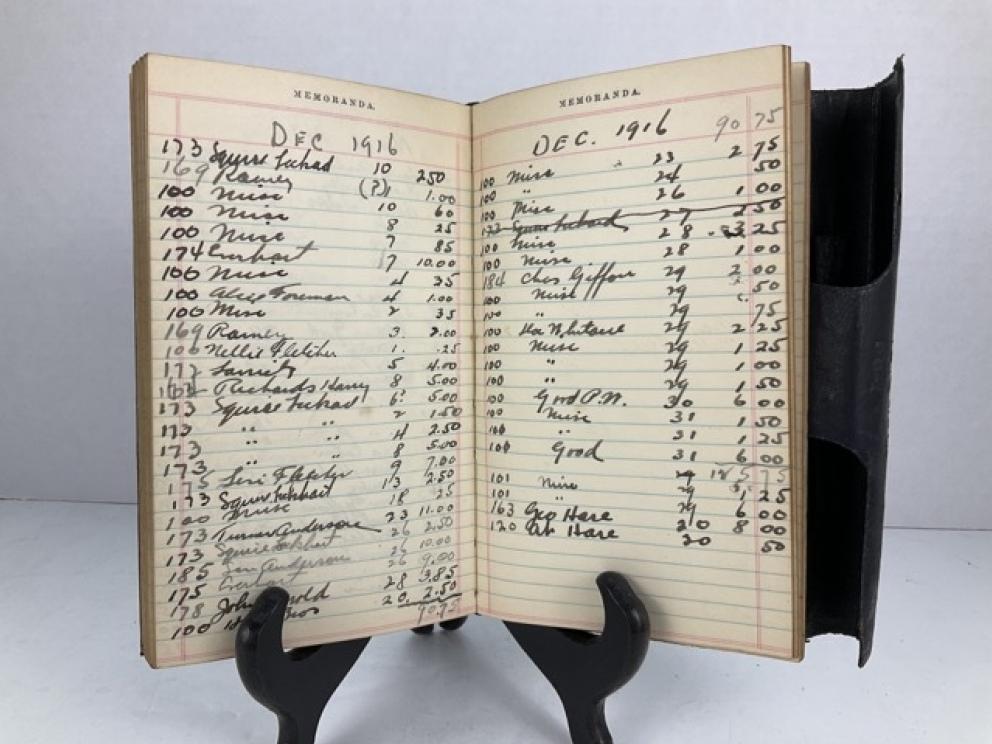 MEMORANDA.
DEC 1916
173 Squire 10 2.50
169 Ramey (P) 1 1.00
100 Misc 10 60
100 Misc 8 25
100 Misc 7 85
174 Everhart 7 10.00
100 Misc 4 35
100 Alice Foreman 4 1.00
100 Misc 2 35
169 Ramey 3. 2.00
100 Nellie Fletcher 1. .25
172 5 4.00
Richards Harry 8 5.00
173 Squire 6 5.00
173 " " 2 1.50
173 " " 4 2.50
173 " " 8 5.00
175 Levi Fletcher 9 7.00
173 Squire 13 2.50
100 Misc 18 25
173 Turner Anderson 23 11.00
173 Squire 26 2.50
185 Anderson 26 10.00
175 Everhart 26 9.00
178 John 28 3.85
100 20 2.50
90.75
MEMORANDA.
DEC. 1916 90 75
100 Misc 23 2 75
100 " 24 50
100 Misc 26 1 00
Squire 27 2 50
100 Misc 28 3 25
100 Misc 28 1 00
184 Chas Giffon 29 2 00
100 Misc 29 50
100 " 29 75
100 29 2 25
100 Misc 29 1 25
100 " 29 1 00
100 " 29 1 50
100 Good P.W. 30 6 00
100 Misc 31 1 50
100 " 31 1 25
100 Good 31 6 00
101 Misc 29
101 " 29 1 25
163 Geo Hare 29 6 00
120 Hare 20 8 00
20 50